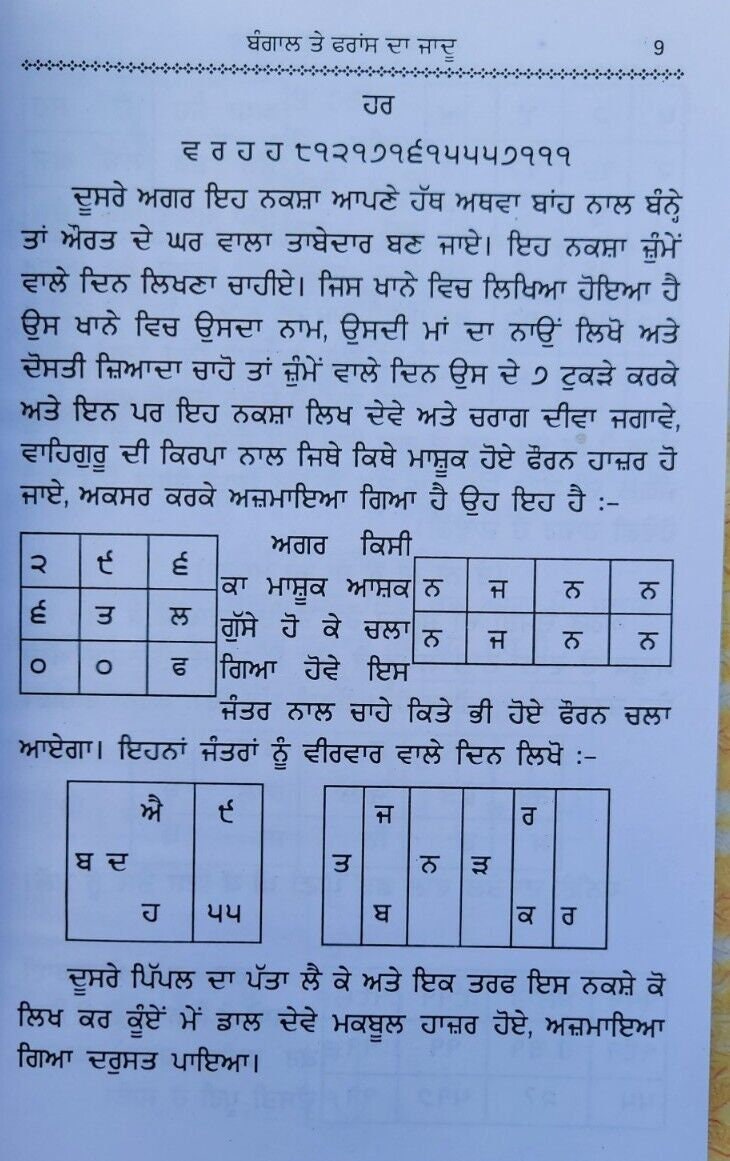 ਬੰਗਾਲ ਤੇ ਫਰਾਂਸ ਦਾ ਜਾਦੂ 9
ਹਰ
ਵ ਰ ਹ ਹ ੮੧੨੧੭੧੬੧੫੫੫੭੧੧੧
ਦੂਸਰੇ ਅਗਰ ਇਹ ਨਕਸ਼ਾ ਆਪਣੇ ਹੱਥ ਅਥਵਾ ਬਾਂਹ ਨਾਲ ਬੰਨ੍ਹੇ
ਤਾਂ ਔਰਤ ਦੇ ਘਰ ਵਾਲਾ ਤਾਬੇਦਾਰ ਬਣ ਜਾਏ। ਇਹ ਨਕਸ਼ਾ ਜ਼ੁੰਮੇਂ
ਵਾਲੇ ਦਿਨ ਲਿਖਣਾ ਚਾਹੀਏ। ਜਿਸ ਖਾਨੇ ਵਿਚ ਲਿਖਿਆ ਹੋਇਆ ਹੈ
ਉਸ ਖਾਨੇ ਵਿਚ ਉਸਦਾ ਨਾਮ, ਉਸਦੀ ਮਾਂ ਦਾ ਨਾਉਂ ਲਿਖੋ ਅਤੇ
ਦੋਸਤੀ ਜ਼ਿਆਦਾ ਚਾਹੋ ਤਾਂ ਜ਼ੁੰਮੇਂ ਵਾਲੇ ਦਿਨ ਉਸ ਦੇ ੭ ਟੁਕੜੇ ਕਰਕੇ
ਅਤੇ ਇਨ ਪਰ ਇਹ ਨਕਸ਼ਾ ਲਿਖ ਦੇਵੇ ਅਤੇ ਚਰਾਗ ਦੀਵਾ ਜਗਾਵੇ,
ਵਾਹਿਗੁਰੂ ਦੀ ਕਿਰਪਾ ਨਾਲ ਜਿਥੇ ਕਿਥੇ ਮਾਸ਼ੂਕ ਹੋਏ ਫੌਰਨ ਹਾਜ਼ਰ ਹੋ
ਜਾਏ, ਅਕਸਰ ਕਰਕੇ ਅਜ਼ਮਾਇਆ ਗਿਆ ਹੈ ਉਹ ਇਹ ਹੈ :-
੨ ੯ ੬
੬ ਤ ਲ
੦ ੦ ਫ
ਅਗਰ ਕਿਸੀ
ਕਾ ਮਾਸ਼ੂਕ ਆਸ਼ਕ
ਗੁੱਸੇ ਹੋ ਕੇ ਚਲਾ
ਗਿਆ ਹੋਵੇ ਇਸ
ਨ ਜ ਨ ਨ
ਨ ਜ ਨ ਨ
ਜੰਤਰ ਨਾਲ ਚਾਹੇ ਕਿਤੇ ਭੀ ਹੋਏ ਫੌਰਨ ਚਲਾ
ਆਏਗਾ। ਇਹਨਾਂ ਜੰਤਰਾਂ ਨੂੰ ਵੀਰਵਾਰ ਵਾਲੇ ਦਿਨ ਲਿਖੋ :-
ਐ ੯
ਬ ਦ
ਹ ੫੫
ਜ ਰ
ਤ ਨ ੜ
ਬ ਕ ਰ
ਦੂਸਰੇ ਪਿੱਪਲ ਦਾ ਪੱਤਾ ਲੈ ਕੇ ਅਤੇ ਇਕ ਤਰਫ ਇਸ ਨਕਸ਼ੇ ਕੋ
ਲਿਖ ਕਰ ਕੂੰਏਂ ਮੇਂ ਡਾਲ ਦੇਵੇ ਮਕਬੂਲ ਹਾਜ਼ਰ ਹੋਏ, ਅਜ਼ਮਾਇਆ
ਗਿਆ ਦਰੁਸਤ ਪਾਇਆ।